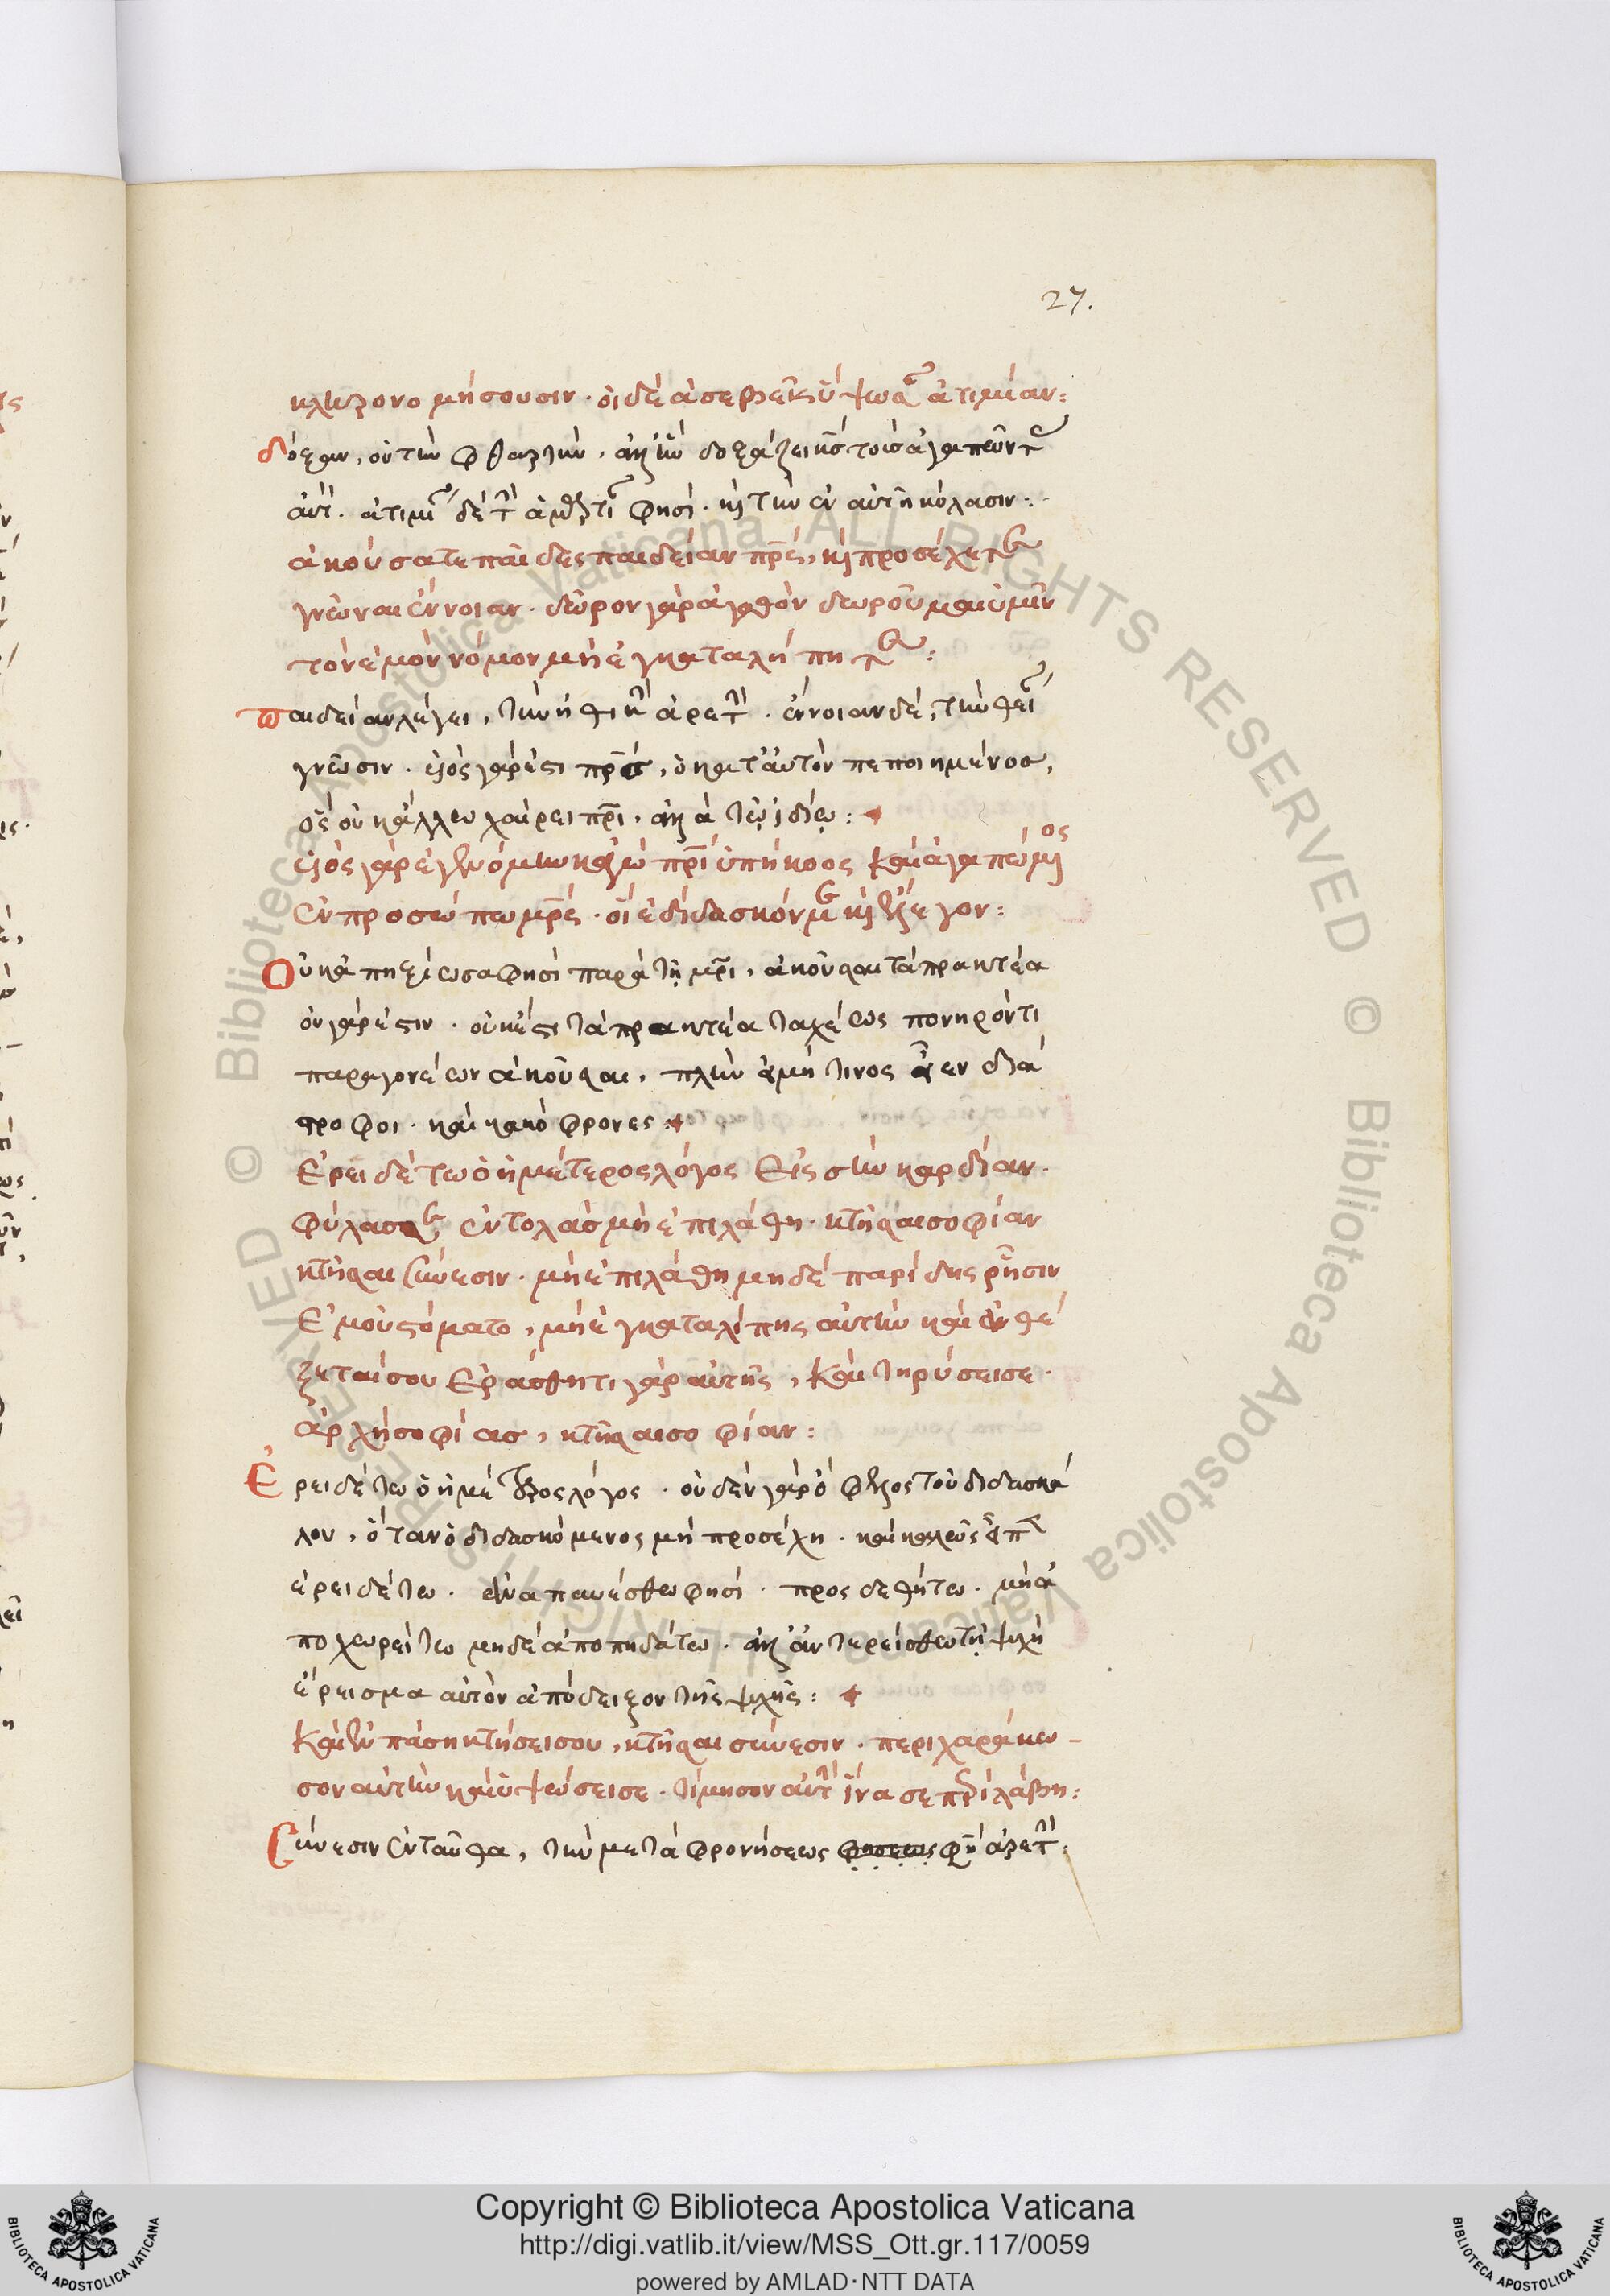 27.
κληρονομήσουσιν · οἱ δὲ ἀσεβεῖς ὕψωσαν ἀτιμίαν :
δόξαν, οὐ τὴν φθαρτὴν, ἀλλ' ἣν δοξάζει κς τοὺς ἀγαπῶντας
αὐτόν · ἀτιμίαν δὲ τὴν ἁμαρτίαν φησὶ · κὶ τὴν ἐν αὐτῇ κόλασιν :
ἀκούσατε παῖδες παιδείαν πρς, κὶ προσέχετε
γνῶναι ἔννοιαν · δῶρον γὰρ ἀγαθὸν δωροῦμαι ὑμῖν
τὸν ἐμὸν νόμον μὴ ἐγκαταλήπητε :
παιδείαν λέγει, τὴν ἠθικὴν ἀρετήν · ἔννοιαν δὲ, τὴν θείαν
γνῶσιν · υἱὸς γάρ ἐστι πρς, ὁ κατ' αὐτὸν πεποιημένος,
ὃς οὐκ ἄλλω χαίρει πρι, ἀλλὰ τῷ ἰδίῳ :
υἱὸς γὰρ ἐγενόμην κἀγὼ πρὶ ὑπήκοος καὶ ἀγαπώμενος
ἐν προσώπω μρς · οἳ ἐδίδασκόν με κὶ ἔλεγον :
Οὐκ ἀπηξίωσα φησὶ παρὰ τῇ μρὶ, ἀκοῦσαι τὰ πρακτέα
παρα γονέων ἀκοῦσαι, πλὴν ἀμή τινος
στροφοι · καὶ κακόφρονες :
Ἐρειδέτω ὁ ἡμέτερος λόγος εἰς σὴν καρδίαν ·
φύλασσε ἐντολὰς μὴ ἐπιλάθη · κτῆσαι σοφίαν
κτῆσαι σύνεσιν · μὴ ἐπιλάθη μηδὲ παρίδης ῥῆσιν
ἐμοῦ στόματο, μὴ ἐγκαταλίπης αὐτὴν καὶ ἀνθέ
ξεταί σου ἐράσθητι γὰρ αὐτῆς, καὶ τηρήσει σε ·
ἀρχὴ σοφίας, κτῆσαι σοφίαν :
Ἐρειδέτω ὁ ἡμέτερος λόγος · οὐδὲν γὰρ ὄφελος τοῦ διδασκά
λου, ὅταν ὁ διδασκόμενος μὴ προσέχη · καὶ καλῶς εἶπεν
ἐρειδέτω · ἐναπαυέσθω φησὶ · προσδεθήτω · μὴ ἀ
ποχωρείτω μηδὲ ἀποπηδάτω · ἀλλ' ἀντερείσθω τῇ ψυχῇ
ἔρεισμα αὐτὸν ἀπόδειξον τῆς ψυχῆς :
Καὶ ἐν πάση κτήσει σου, κτῆσαι σύνεσιν · περιχαράκω-
σον αὐτὴν καὶ ὑψώσει σε · τίμησον αὐτὴν ἵνα σε περιλάβη :
Σύνεσιν ἐνταῦθα, τὴν μετὰ φρονήσεως φησὶν ἀρετὴν :
Copyright © Biblioteca Apostolica Vaticana
http://digi.vatlib.it/view/MSS_Ott.gr.117/0059
powered by AMLAD·NTT DATA
BIBLIOTECA APOSTOLICA VATICANA
BIBLIOTECA APOSTOLICA VATICANA